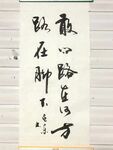 敢问路在何方
路在脚下